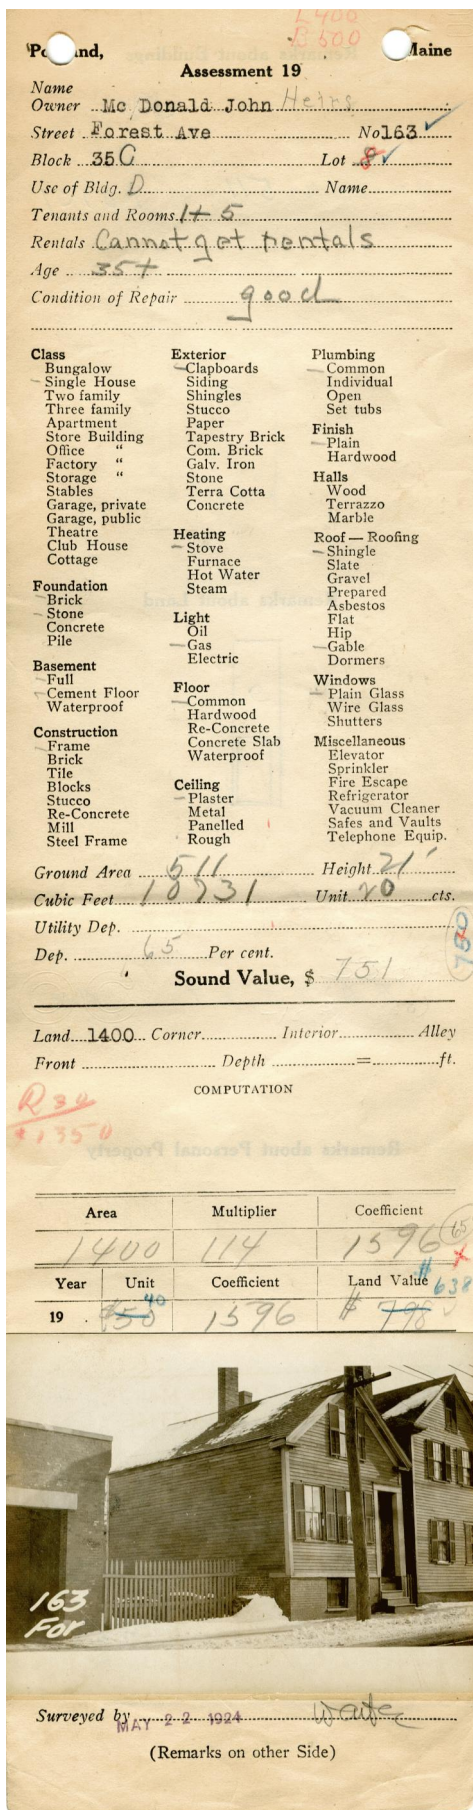 L 400
B 600
Portland, Maine
Assessment 19
Name
Owner Mc Donald John Heirs
Street Forest Ave No 163
Block 35C Lot 8
Use of Bldg. D Name
Tenants and Rooms 1 + 5
Rentals Cannot get rentals
Age 35+
Condition of Repair good
Class
Bungalow
Single House
Two family
Three family
Apartment
Store Building
Office "
Factory "
Storage "
Stables
Garage, private
Garage, public
Theatre
Club House
Cottage
Foundation
Brick
Stone
Concrete
Pile
Basement
Full
Cement Floor
Waterproof
Construction
Frame
Brick
Tile
Blocks
Stucco
Re-Concrete
Mill
Steel Frame
Exterior
Clapboards
Siding
Shingles
Stucco
Paper
Tapestry Brick
Com. Brick
Galv. Iron
Stone
Terra Cotta
Concrete
Heating
Stove
Furnace
Hot Water
Steam
Light
Oil
Gas
Electric
Floor
Common
Hardwood
Re-Concrete
Concrete Slab
Waterproof
Ceiling
Plaster
Metal
Panelled
Rough
Plumbing
Common
Individual
Open
Set tubs
Finish
Plain
Hardwood
Halls
Wood
Terrazzo
Marble
Roof — Roofing
Shingle
Slate
Gravel
Prepared
Asbestos
Flat
Hip
Gable
Dormers
Windows
Plain Glass
Wire Glass
Shutters
Miscellaneous
Elevator
Sprinkler
Fire Escape
Refrigerator
Vacuum Cleaner
Safes and Vaults
Telephone Equip.
Ground Area 511 Height 21'
Cubic Feet 10731 Unit 20 cts.
Utility Dep.
Dep. 65 Per cent.
750
Sound Value, $ 751
Land 1400 Corner Interior Alley
Front Depth = ft.
COMPUTATION
R 30
$1350
Area Multiplier Coefficient
1400 114 1596 65
Year Unit Coefficient Land Value $638
19 $50 40 1596 $798
163
For
Surveyed by
MAY 22 1924
(Remarks on other Side)